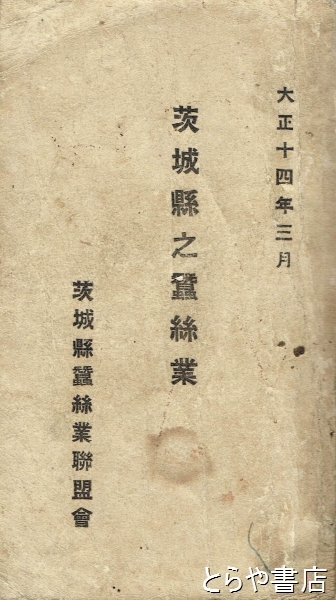 大正十四年三月
茨城縣之蠶絲業
茨城縣蠶絲業聯盟會
とらや書店